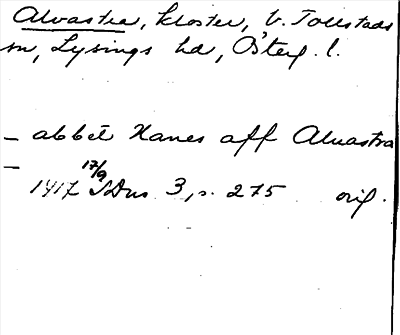 Alvastra, kloster, V. Tollstads
sn, Lysings hd, Österg. l.
– abbet Hanes aff Aluastra
–
17/9
1417 SDns 3, s. 275 orig.